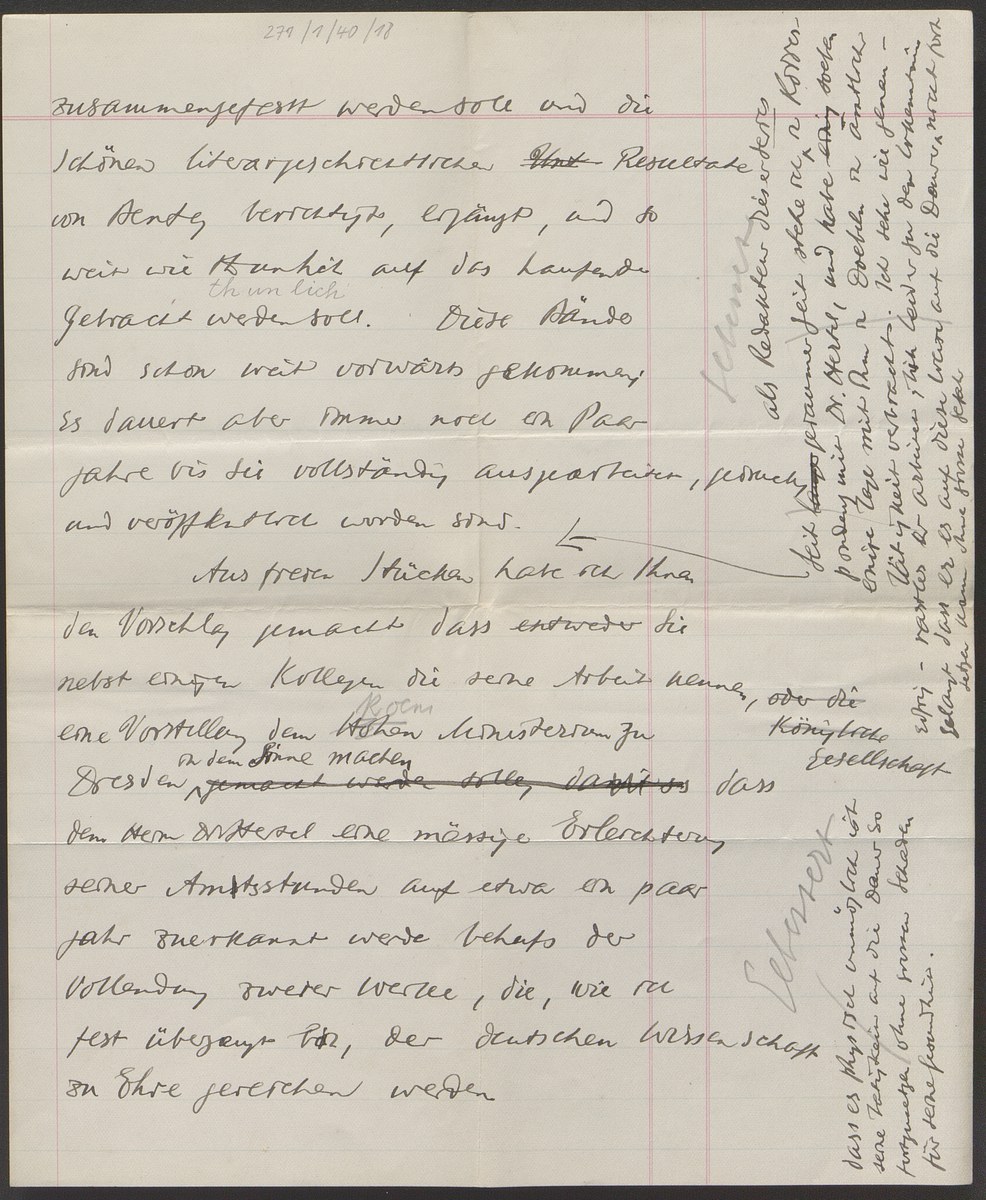 279/1/40/18
zusammengefasst werden soll und die
schönen literargeschichtlichen Resultate
von Benfey berichtigt, ergänzt, und so
weit wie thunlich auf das laufende
thunlich
Gebracht werden soll. Diese Bände
sind schon weit vorwärts gekommen;
Es dauert aber immer noch ein Paar
Jahre bis sie vollständig ausgearbeitet, gedruckt
und veröffentlicht worden sind.
Aus freien Stücken habe ich Ihnen
den Vorschlag gemacht dass entweder Sie
nebst einigen Kollegen die seine Arbeit kennen, oder die
Königliche
Gesellschaft
eine Vorstellung dem Hohen Ministerium zu
in dem Sinne machen
Dresden gemacht werde solle, damit es dass
dem Herrn Dr Hertel eine mässige Erleichterung
seiner Amtsstunden auf etwa ein paar
Jahr zuerkannt werde behufs der
Vollendung zweier Werke, die, wie ich
fest überzeugt bin, der deutschen Wissenschaft
zu Ehre gereichen werden
als Redakteur dieser Series
Seit geraumer Zeit stehe ich in Korres-
pondenz mit Dr. Hertel, und habe soeben
einige Tage mit Ihm in Doebeln in
Tätigkeit verbracht. Ich sehe wie genau –
eifrig – rastlos er arbeitet; bin leider zu der Erkenntnis
gelangt dass er es auf diese Weise auf die Dauer nicht fort
setzen kann ohne grosse
dass es physisch unmöglich ist
seine Tätigkeit auf die Dauer so
fortzusetzen ohne grossen Schaden
für seine Gesundheit.